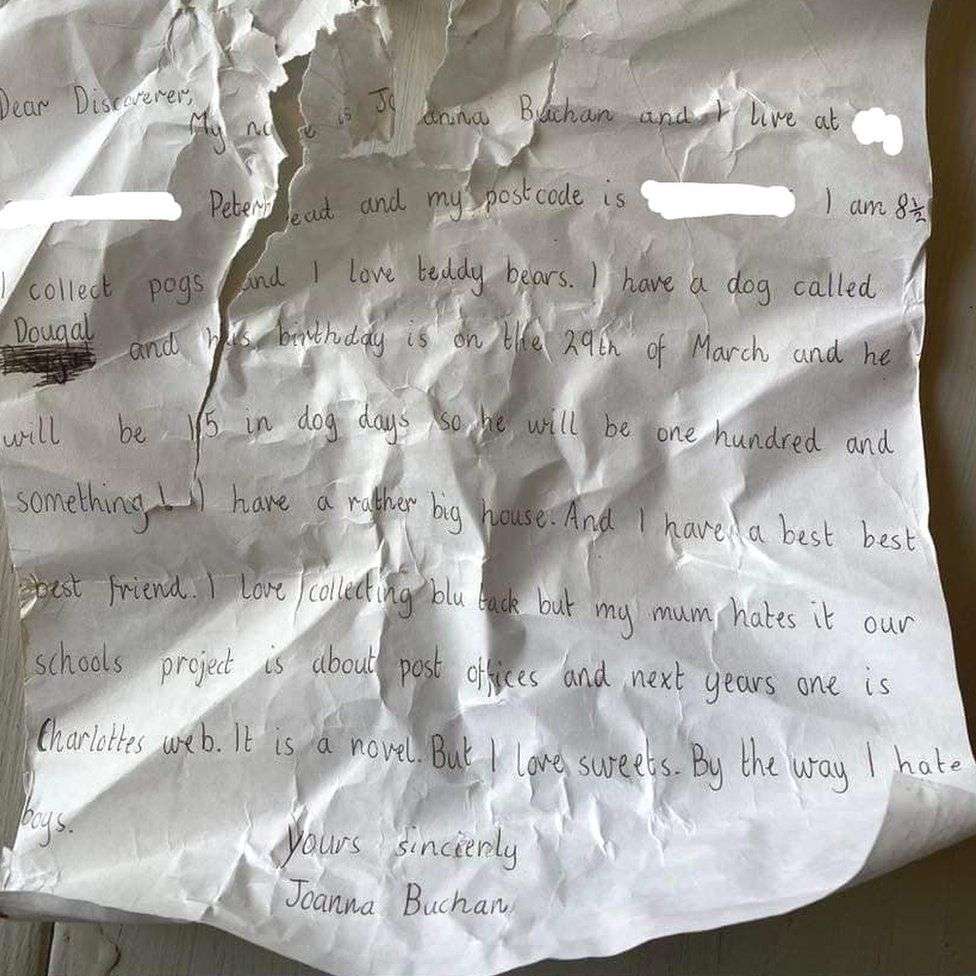 Dear Discoverer,
My name is Joanna Buchan and I live at
Peterhead and my postcode is I am 8½
I collect pogs and I love teddy bears. I have a dog called
Dougal and his birthday is on the 29th of March and he
will be 15 in dog days so he will be one hundred and
something! I have a rather big house. And I have a best best
best friend. I love collecting blu tack but my mum hates it our
schools project is about post offices and next years one is
Charlottes web. It is a novel. But I love sweets. By the way I hate
boys.
Yours sincierly
Joanna Buchan